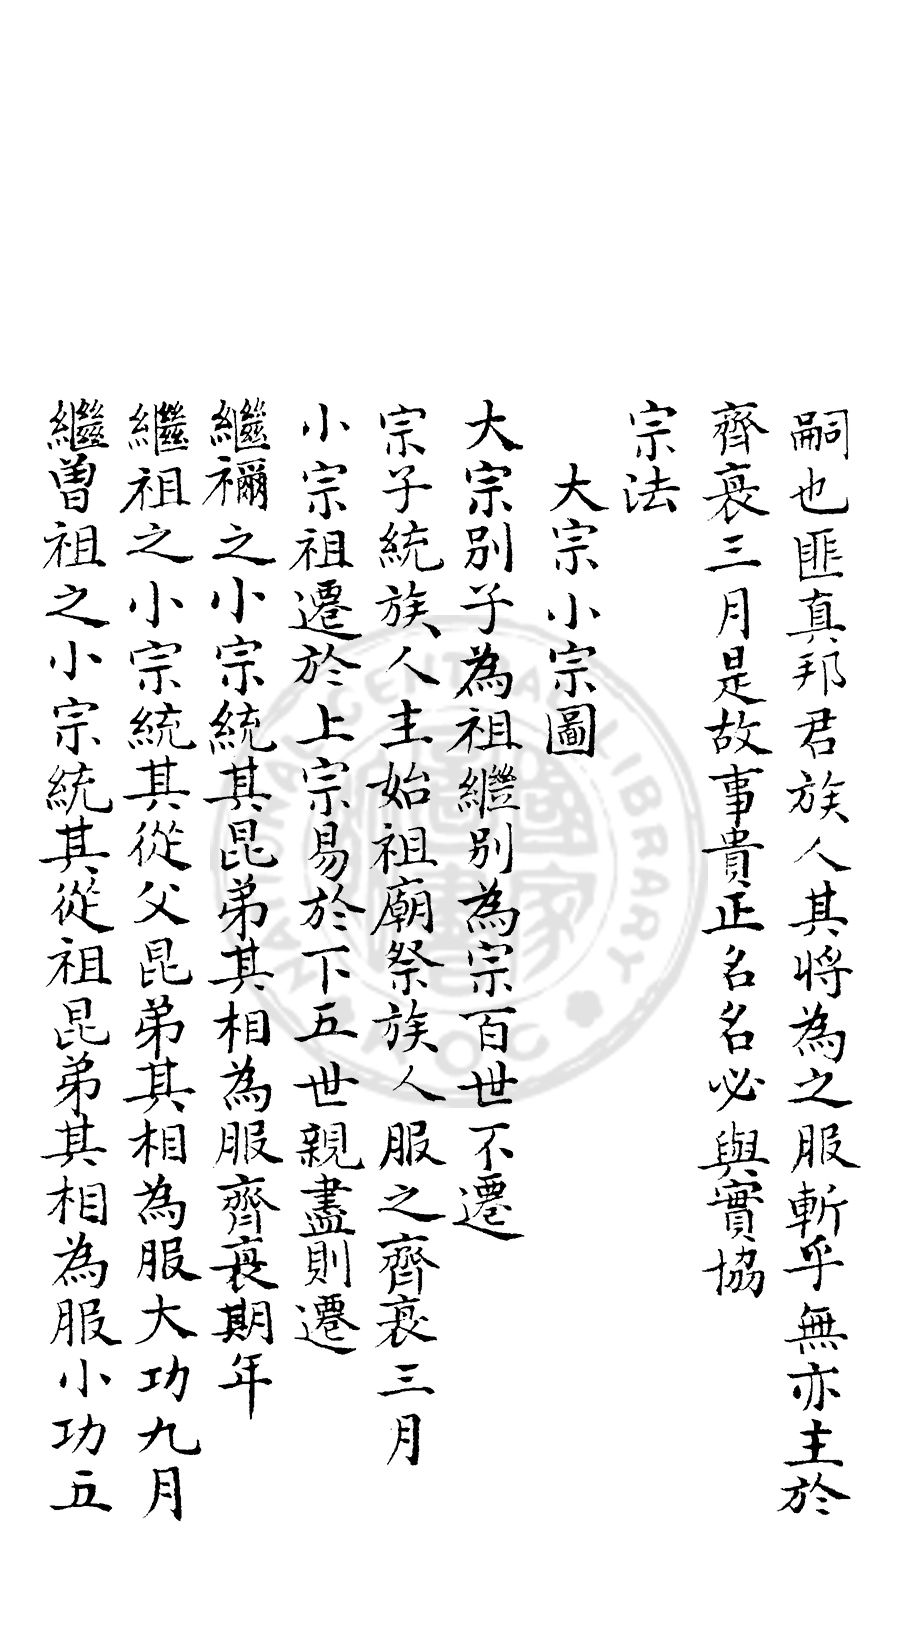 嗣也匪真邦君族人其將為之服斬乎無亦主於
齊衰三月是故事貴正名名必與實協
宗法
大宗小宗圖
大宗別子為祖繼別為宗百世不遷
宗子統族人主始祖廟祭族人服之齊衰三月
小宗祖遷於上宗易於下五世親盡則遷
繼禰之小宗統其昆弟其相為服齊衰期年
繼祖之小宗統其從父昆弟其相為服大功九月
繼曾祖之小宗統其從祖昆弟其相為服小功五
NATIONAL CENTRAL LIBRARY
ROC
國家圖書